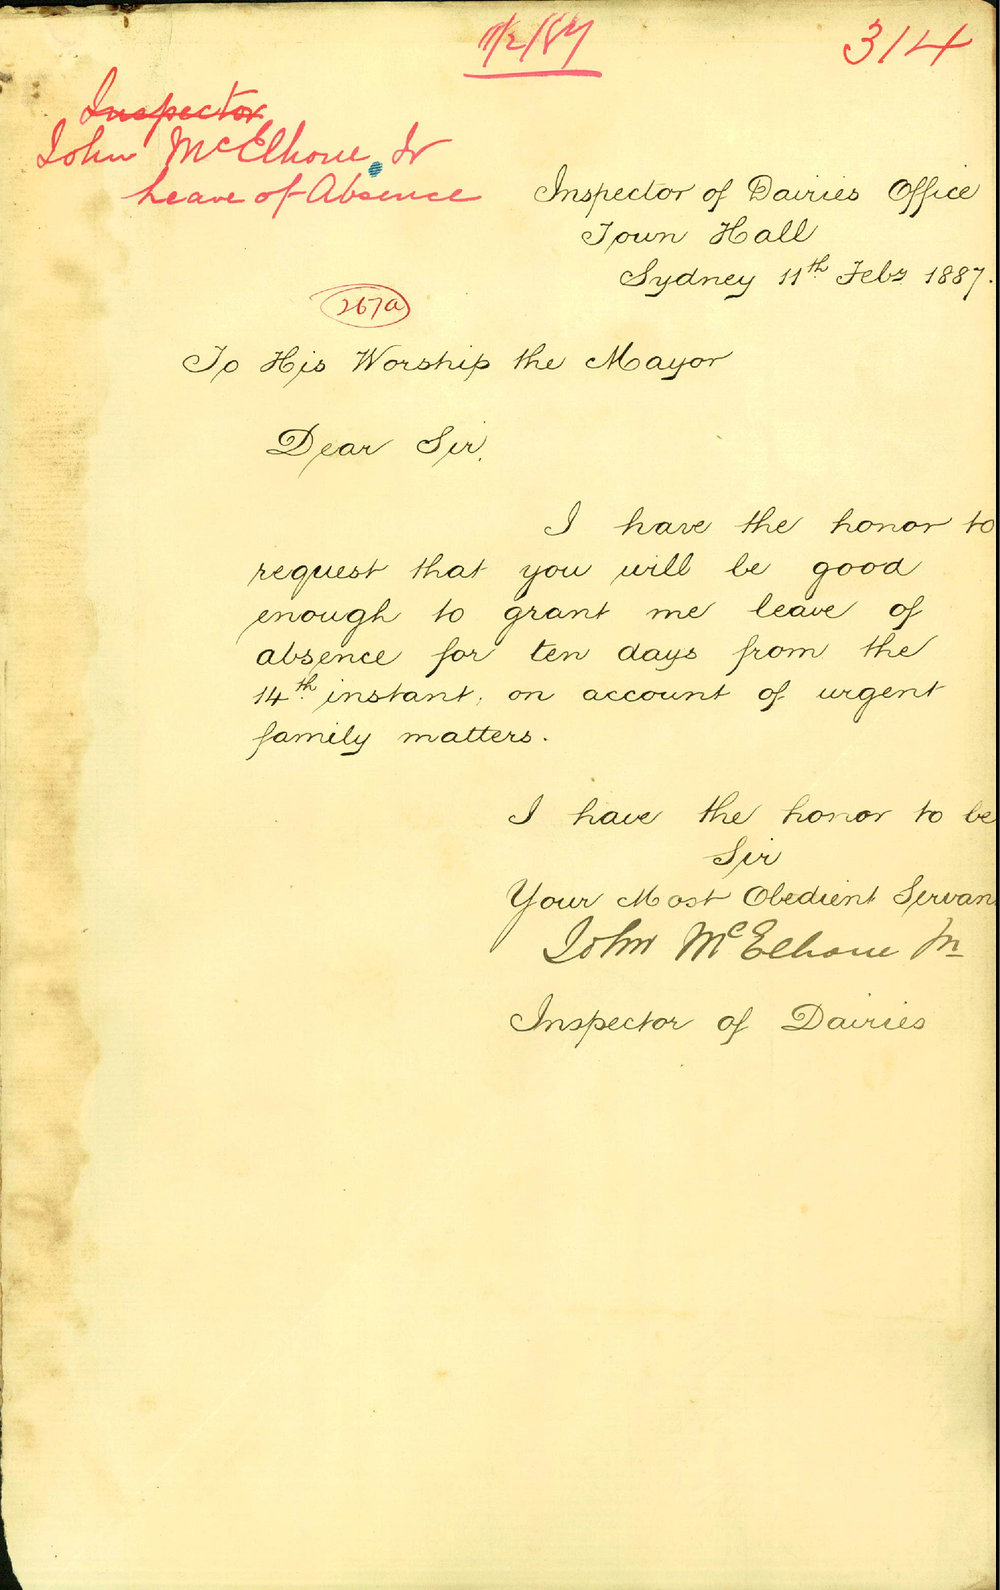 11/2/87
314
Inspector
John McElhone Jr
Leave of Absence
Inspector of Dairies Office
Town Hall
Sydney 11th Feby 1887.
267a
To His Worship the Mayor
Dear Sir,
I have the honor to
request that you will be good
enough to grant me leave of
absence for ten days from the
14th instant, on account of urgent
family matters.
I have the honor to be
Sir
Your Most Obedient Servan
John McElhone Jr
Inspector of Dairies